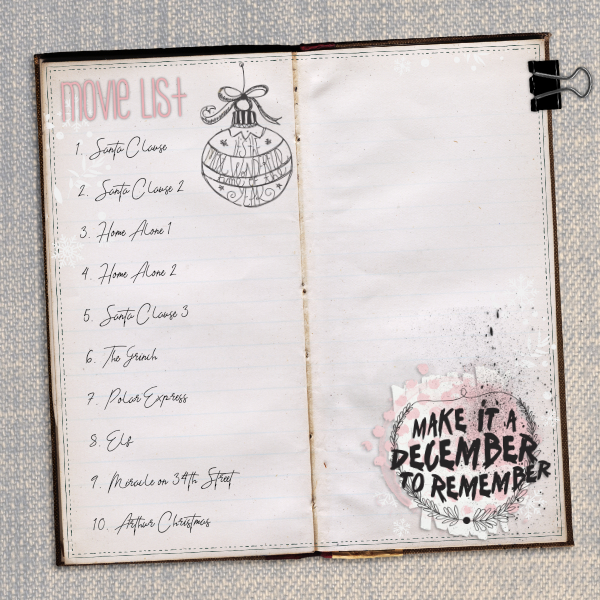 MOVIE LIST
1. Santa Clause
2. Santa Clause 2
3. Home Alone 1
4. Home Alone 2
5. Santa Clause 3
6. The Grinch
7. Polar Express
8. Elf
9. Miracle on 34th Street
10. Arthur Christmas
IT'S THE
MOST WONDERFUL
YEAR
MAKE IT A
DECEMBER
TO REMEMBER